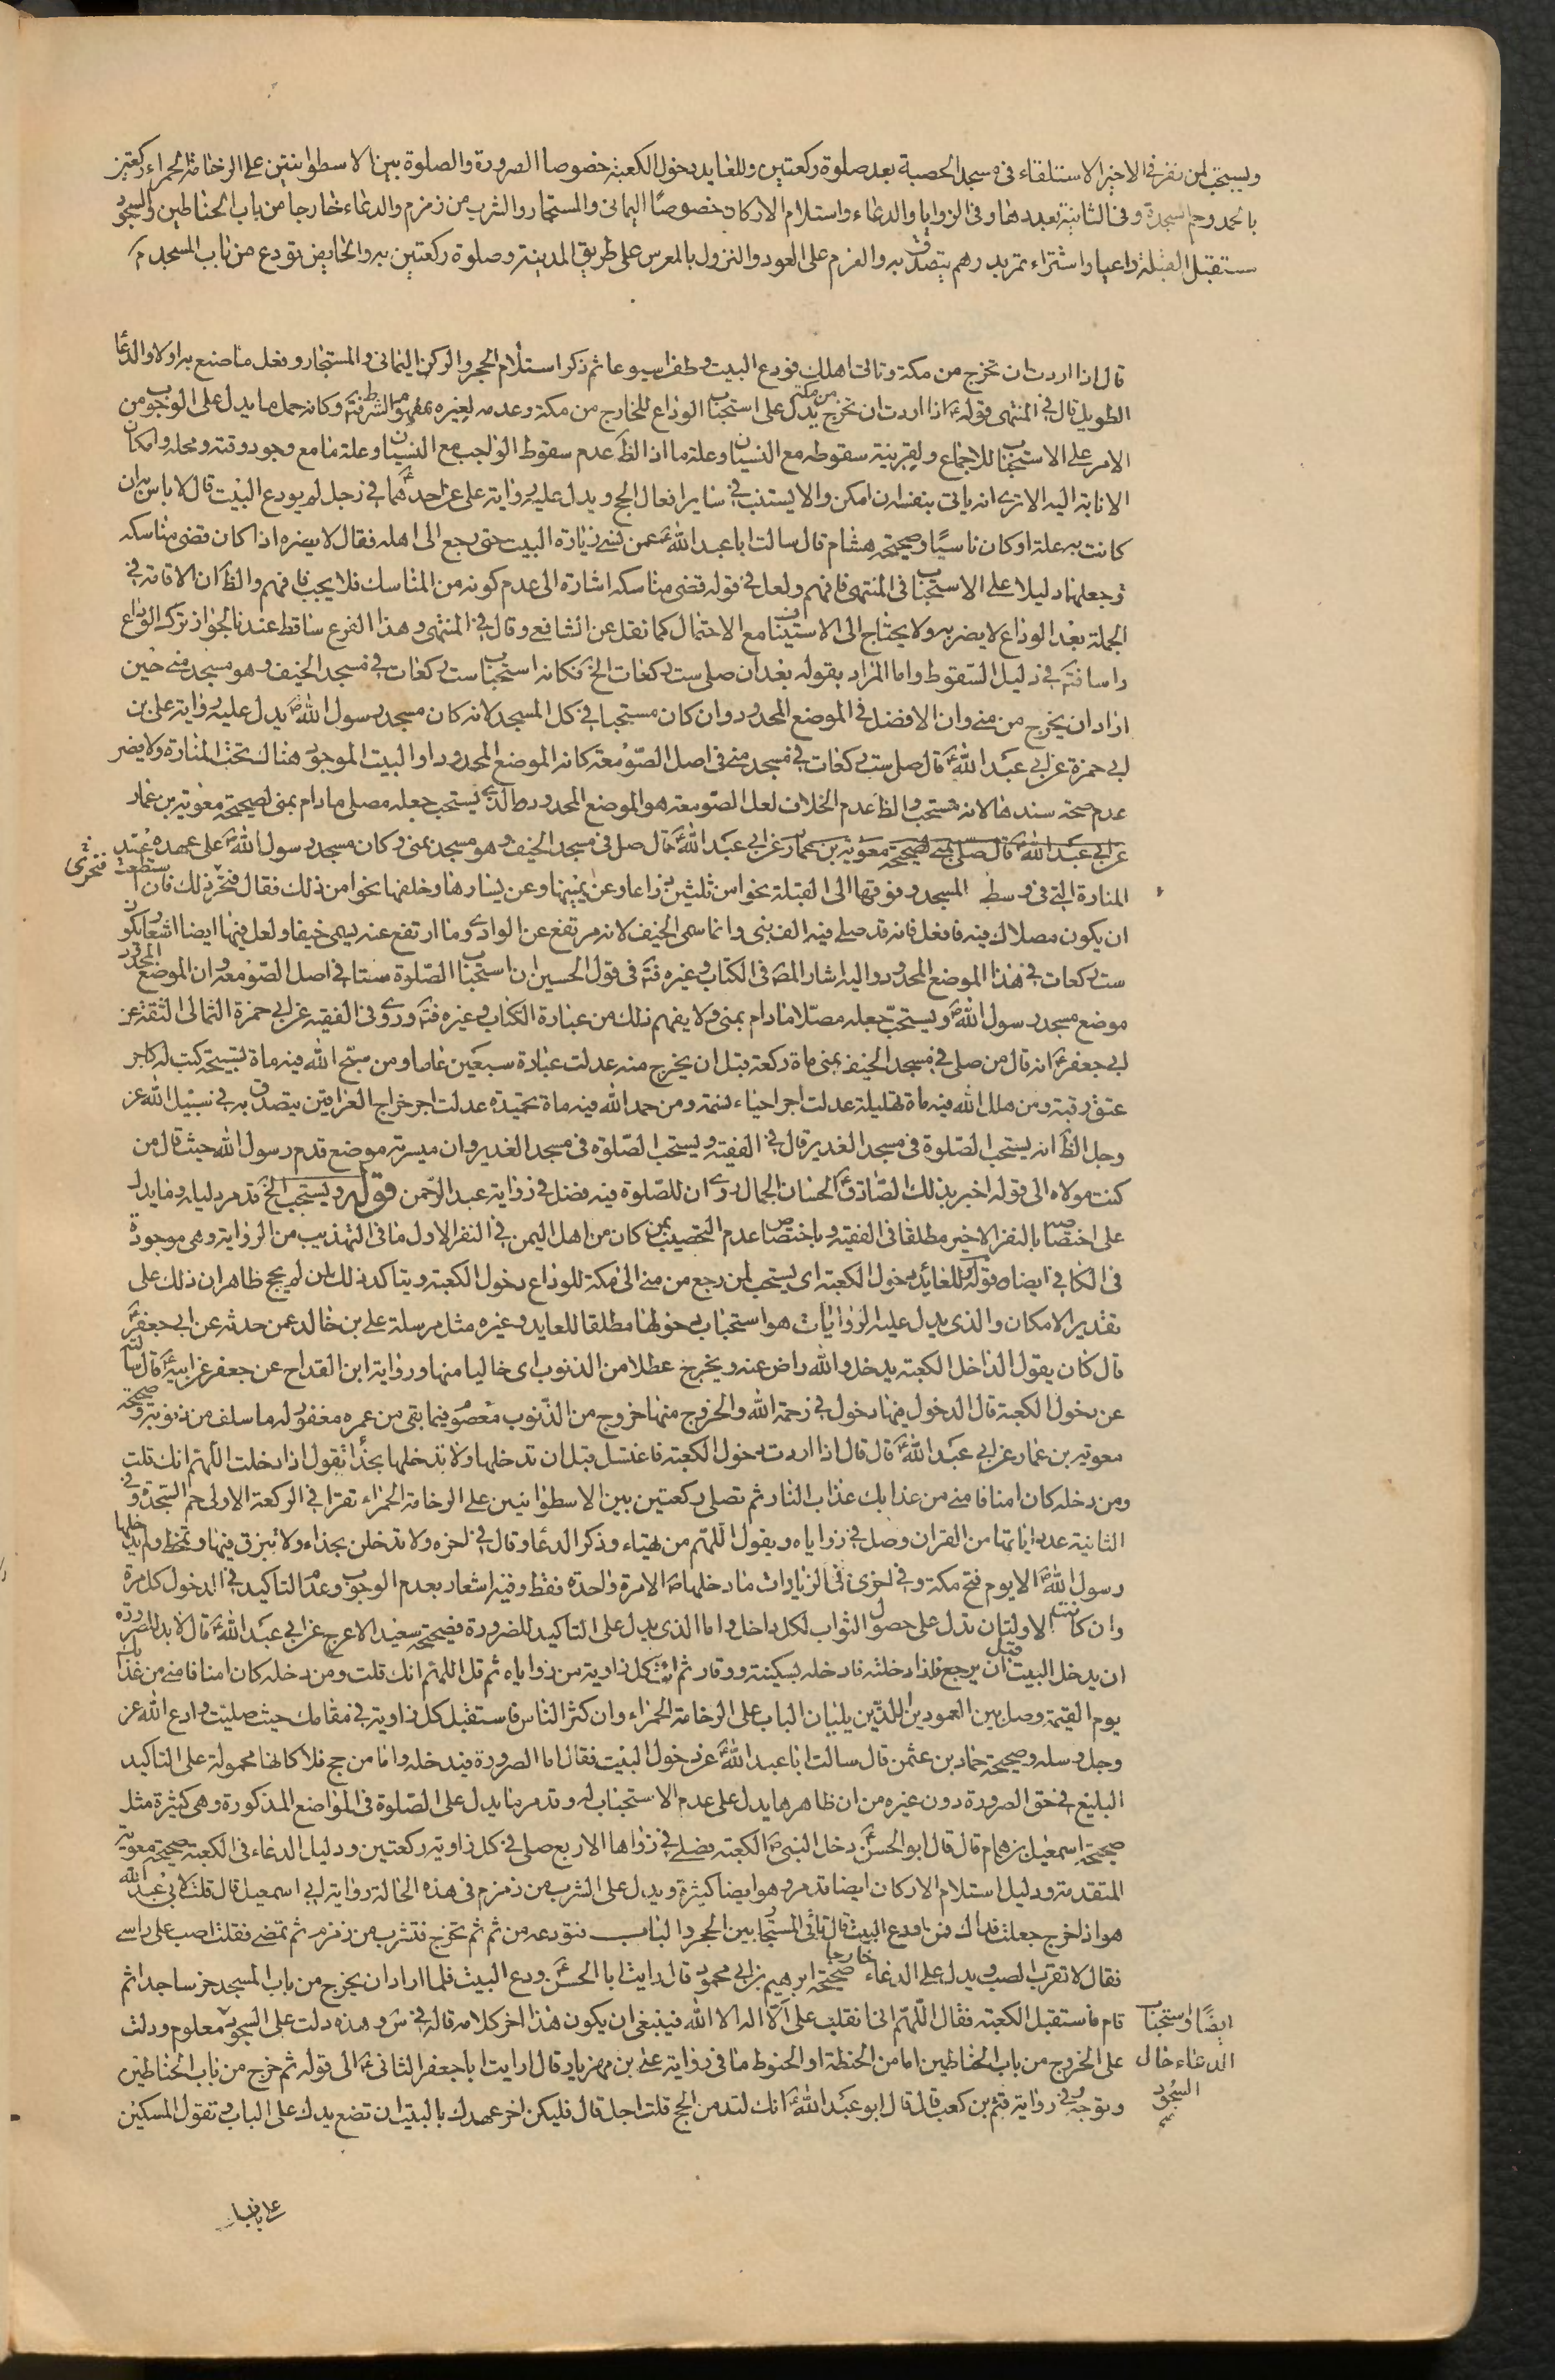 ويستحب لمن نفر في الاخير الاستلقاء في مسجد الحصبة بعد صلوة ركعتين وللعايد دخول الكعبة خصوصا الصرورة والصلوة بين الاسطوانتين على الرخامة الحمراء ركعتين
بالحمد وحم السجدة وفي الثانية بعددها وفي الزوايا والدعاء واستلام الاركان خصوصًا اليماني والمستجار والشرب من زمزم والدعاء خارجا من باب الحناطين والسجود
مستقبل القبلة داعيا واشتراء تمر بدرهم يتصدق به والعزم على العود والنزول بالمعرس على طريق المدينة وصلوة ركعتين به والحايض تودع من باب المسجد
قال اذا اردت ان تخرج من مكة وتاتي اهلك فودع البيت وطف اسبوعا ثم ذكر استلام الحجر والركن اليماني والمستجار وفعل ما صنع به اولا والدعا
الطويل قال في المنتهى قوله ع اذا اردت ان تخرج من مكة يدل على استحباب الوداع للخارج من مكة وعدمه لغيره بمفهوم الشرط فتم وكانه حمل ما يدل على الوجوب من
الامر على الاستحباب للاجماع ولقرينة سقوطه مع النسيان وعلة ما اذ الظ عدم سقوط الواجب مع النسيان وعلة ما مع وجود وقته ومحله وامكان
الانابة اليه الا ترى انه ياتي بنفسه ان امكن والا يستنيب في ساير افعال الحج ويدل عليه رواية علي عن احدهما ع في رجل لم يودع البيت قال لا باس به ان
كانت به علة او كان ناسيًا وصحيحة هشام قال سالت ابا عبد الله ع عمن نسي زيارة البيت حتى رجع الى اهله فقال لا يضره اذا كان قضى مناسكه
وجعلها دليلا على الاستحباب في المنتهى فافهم ولعل في قوله قضى مناسكه اشارة الى عدم كونه من المناسك فلا يجب فافهم والظ ان الاقامة في
الجملة بعد الوداع لا يضر به ولا يحتاج الى الاستيناف مع الاحتمال كما نقل عن الشافعي وقال في المنتهى وهذا الفرع ساقط عندنا لجواز ترك الوداع
راسا فتم في دليل السقوط واما المراد بقوله بعد ان صلى ست ركعات الخ فكانه استحباب ست ركعات في مسجد الخيف وهو مسجد منى حين
اراد ان يخرج من منى وان الافضل في الموضع المحدود وان كان مستحبا في كل المسجد لانه كان مسجد رسول الله ص يدل عليه رواية علي بن
ابي حمزة عن ابي عبد الله ع قال صل ست ركعات في مسجد منى في اصل الصومعة كانه الموضع المحدود او البيت الموجود هناك تحت المنارة ولا يضر
عدم صحة سندها لانه مستحب والظ عدم الخلاف لعل الصومعة هو الموضع المحدود والذي يستحب جعله مصلى ما دام بمنى لصحيحة معوية بن عمار
عن ابي عبد الله ع قال صلى بمنى لصحيحة معوية بن عمار عن ابي عبد الله ع قال صل في مسجد الخيف وهو مسجد بمنى وكان مسجد رسول الله ص على عهده عند
المنارة التي في وسط المسجد وفوقها الى القبلة نحوا من ثلثين ذراعا وعن يمينها وعن يسارها وخلفها نحوا من ذلك فقال فتحر ذلك فان استطعت
ان يكون مصلاك فيه فافعل فانه قد صلى فيه الف نبي وانما سمي الخيف لانه مرتفع عن الوادي وما ارتفع عنه يسمى خيفا ولعل فيها ايضا اشعار بكون
ست ركعات في هذا الموضع المحدود واليه اشار المص في الكتاب وغيره فتم في قول الحسين ان استحباب الصلوة ستا في اصل الصومعة وان الموضع المحدود
موضع مسجد رسول الله ص ويستحب جعله مصلا ما دام بمنى ولا يفهم ذلك من عبارة الكتاب وغيره فتم وروى في الفقيه عن ابي حمزة الثمالي الثقة عن
ابي جعفر ع انه قال من صلى في مسجد الخيف بمنى ماة ركعة قبل ان يخرج منه عدلت عبادة سبعين عاما ومن سبح الله فيه ماة تسبيحة كتب له كاجر
عتق رقبة ومن هلل الله فيه ماة تهليلة عدلت اجر احياء نسمة ومن حمد الله فيه ماة تحميدة عدلت اجر خراج العراقين يتصدق به في سبيل الله عز
وجل الظ انه يستحب الصلوة في مسجد الغدير قال في الفقيه ويستحب الصلوة في مسجد الغدير وان ميسرته موضع قدم رسول الله حيث قال من
كنت مولاه الى قوله اخبر بذلك الصادق ع الحسان الجمال وروى ان للصلوة فيه فضل في رواية عبد الرحمن قوله ويستحب الخ قد مر دليله وما يدل
على اختصاصه بالنفر الاخير مطلقا في الفقيه وباختصاص عدم التحصيب بمن كان من اهل اليمن في النفر الاول ما في التهذيب من الرواية وهي موجودة
في الكافي ايضا وقوله وللعائد دخول الكعبة اي يستحب لمن رجع من منى الى مكة للوداع دخول الكعبة ويتاكد ذلك لمن لم يحج ظاهر ان ذلك على
تقدير الامكان والذي يدل عليه الروايات هو استحباب دخولها مطلقا للعايد وغيره مثل مرسلة علي بن خالد عمن حدثه عن ابي جعفر ع
قال كان يقول الداخل الكعبة يدخل والله راض عنه ويخرج عطلا من الذنوب اى خاليا منها ورواية ابن القداح عن جعفر عن ابيه ع قال سالته
عن دخول الكعبة قال الدخول فيها دخول في رحمة الله والخروج منها خروج من الذنوب معصوم فيما بقي من عمره مغفور له ما سلف من ذنوبه وصحيحة
معوية بن عمار عن ابي عبد الله ع قال قال اذا اردت دخول الكعبة فاغتسل قبل ان تدخلها ولا تدخلها بحذاء تقول اذا دخلت اللهم انك قلت
ومن دخله كان امنا فامني من عذابك عذاب النار ثم تصلى ركعتين بين الاسطوانتين على الرخامة الحمراء تقرا في الركعة الاولى حم السجدة وفي
الثانية عدد اياتها من القران وصل في زواياه ويقول اللهم من تهياء وذكر الدعا وقال في اخره ولا تدخلن بحذاء ولا تبزق فيها ولا تمتخط ولم يدخلها
رسول الله ص الا يوم فتح مكة وفي اخرى في الزيارات ما دخلها ص الا مرة واحدة فقط وفيه اشعار بعدم الوجوب وعدم التاكيد في الدخول كل مرة
وان كانت الاولتان تدل على حصول الثواب لكل داخل واما الذي يدل على التاكيد للضرورة فصحيحة سعيد الاعرج عن ابي عبد الله ع قال لا بد للصرورة
ان يدخل البيت قبل ان يرجع فاذا دخلته فادخله بسكينة ووقار ثم ائت كل زاوية من زواياه ثم قل اللهم انك قلت ومن دخله كان امنا فامني من عذاب
يوم القيمة وصل بين العمودين اللذين يليان الباب على الرخامة الحمراء وان كثر الناس فاستقبل كل زاوية في مقامك حيث صليت وادع الله عز
وجل وسله وصحيحة حماد بن عثمن قال سالت ابا عبد الله ع عن دخول البيت فقال اما الصرورة فيدخله واما من حج فلا كانها محمولة على التاكيد
البليغ في حق الصرورة دون غيره من ان ظاهرها يدل على عدم الاستحباب له وقد مر ما يدل على الصلوة في المواضع المذكورة وهي كثيرة مثل
صحيحة اسمعيل بن همام قال قال ابو الحسن ع دخل النبي ص الكعبة فصلى في زواها الاربع صلى في كل زاوية ركعتين ودليل الدعاء في الكعبة صحيحة معوية
المتقدمة ودليل استلام الاركان ايضا قد مر وهو ايضا كثيرة ويدل على الشرب من زمزم في هذه الحالة رواية ابي اسمعيل قال قلت لابي عبد الله
هو اذ اخرج جعلت فداك فمن اودع البيت قال تاتي المستجار بين الحجر والباب فتودعه من ثم ثم تخرج فتشرب من زمزم ثم تمضي فقلت اصب على راسي
فقال لا تقرب الصب ويدل على الدعاء خارجا صحيحة ابرهيم بن ابي محمود قال رايت ابا الحسن ع ودع البيت فلما اراد ان يخرج من باب المسجد خر ساجدا ثم
قام فاستقبل الكعبة فقال اللهم اني انقلب على الا اله الا الله فينبغي ان يكون هذا اخر كلامه قاله في س وهذه دلت على السجود معلوم ودلت
ايضًا واستحباب
على الخروج من باب الحناطين اما من الحنطة او الحنوط ما في رواية علي بن مهزيار قال رايت ابا جعفر الثاني ع الى قوله ثم خرج من باب الحناطين
الدعاء حال
وتوجه وفي رواية قثم بن كعب قال قال ابو عبد الله ع انك لتدمن الحج قلت اجل قال فليكن اخر عهدك بالبيت ان تضع يدك على الباب وتقول المسكين
السجود
على بابك